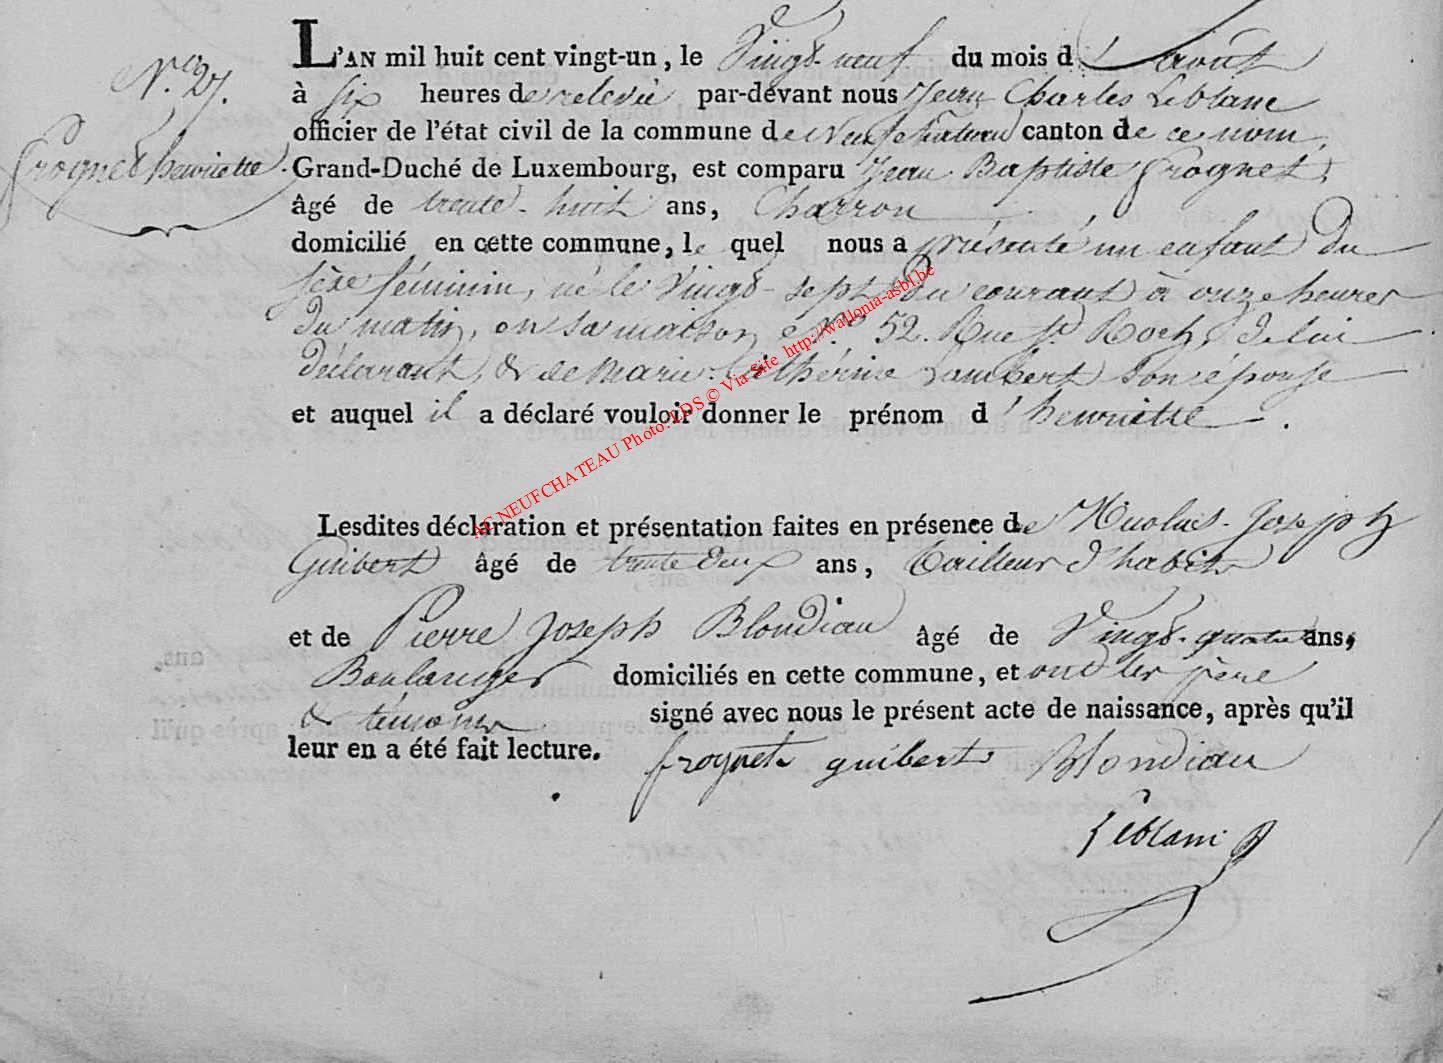 L'AN mil huit cent vingt-un, le Vingt-neuf du mois d'aout
N.° 27.
à six heures de relevée par-devant nous Jean Charles Leblanc
officier de l'état civil de la commune de Neufchateau canton de ce nom,
frognet henriette.
Grand-Duché de Luxembourg, est comparu Jean Baptiste frognet,
âgé de trente-huit ans, Charron
domicilié en cette commune, le quel nous a présenté un enfant du
sexe féminin, né le Vingt-sept du courant à onze heures
du matin, en sa maison, N.° 52. Rue St. Roch, de lui
déclarant, & de Marie Cathérine Lambert son épouse
et auquel il a déclaré vouloir donner le prénom d'henriette.
AC NEUFCHATEAU Photo: LDS © Via Site http://wallonia-asbl.be
Lesdites déclaration et présentation faites en présence de Nicolas-Joseph
Guibert âgé de trente deux ans, tailleur d'habits
et de Pierre Joseph Blondiau âgé de Vingt-quatre ans,
Boulanger domiciliés en cette commune, et ont les père
& témoins signé avec nous le présent acte de naissance, après qu'il
leur en a été fait lecture.
frognet guibert Blondiau
Leblanc